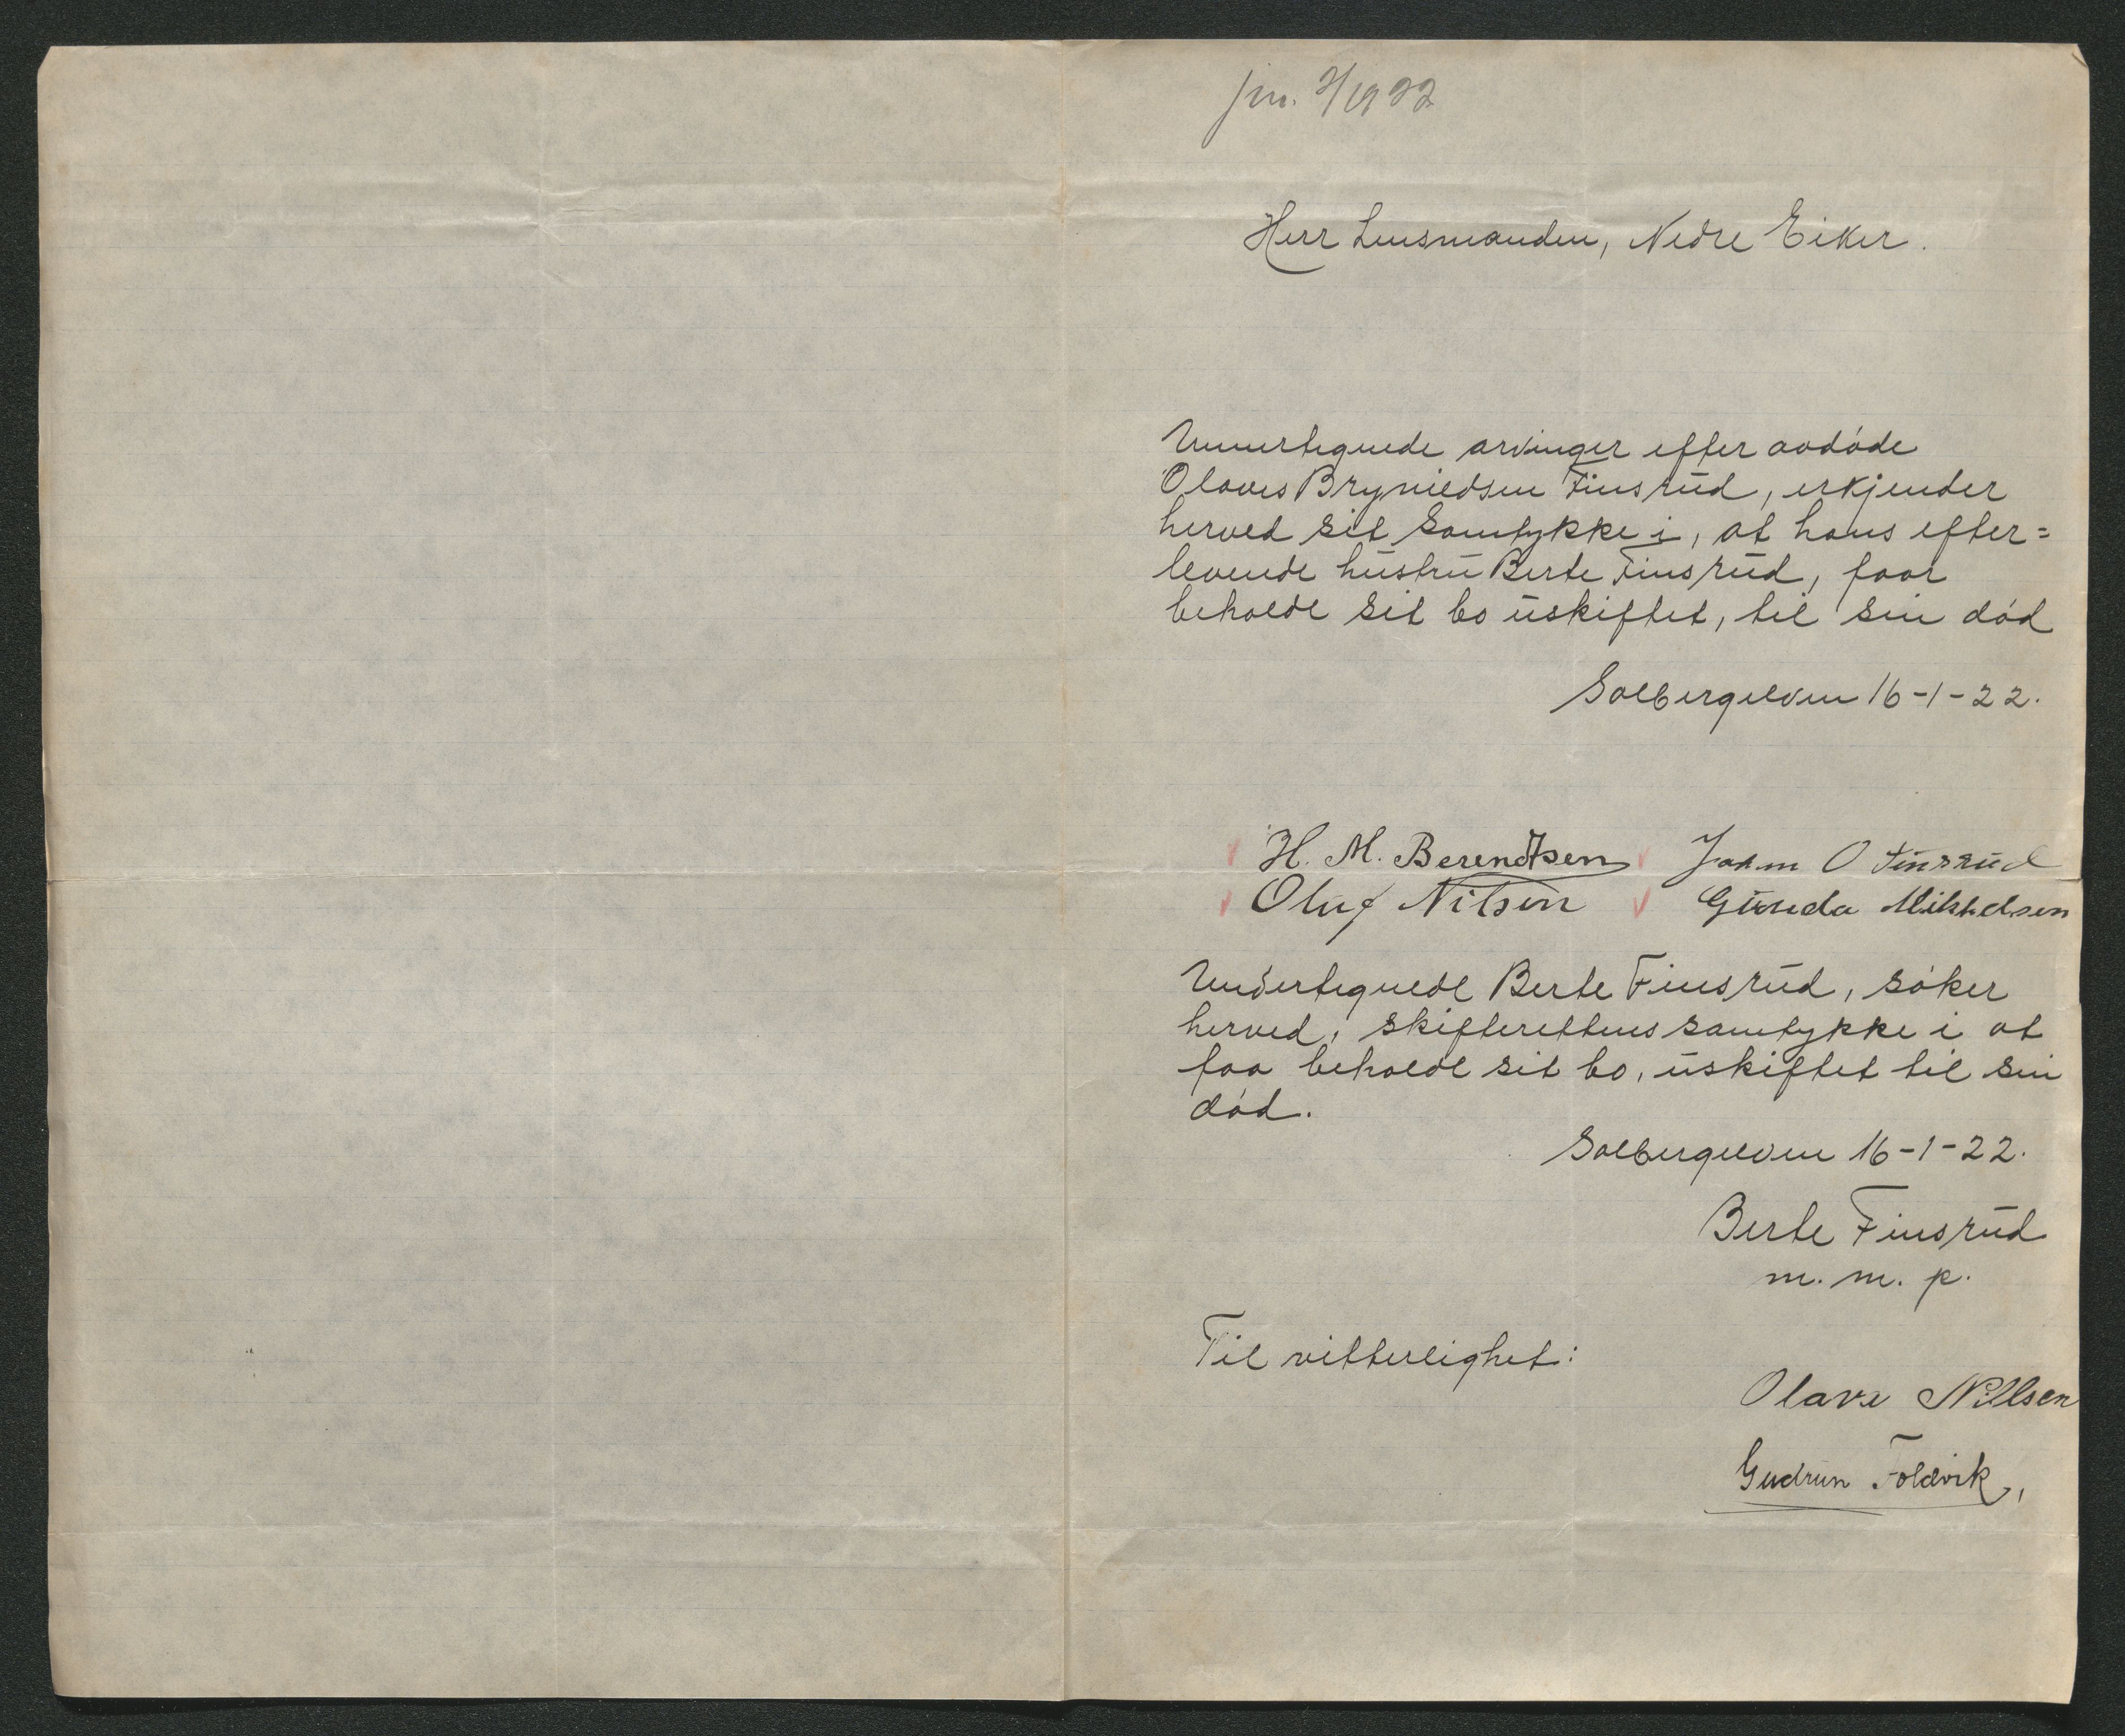 jnr. 2/1922
Herr Lensmanden, Nedre Eiker.
Unnertegnede arvinger efter avdøde
Olaves Brynildsen Finsrud, erkjender
herved sit Samtykke i, at hans efter=
levende hustru Berte Finsrud, faar
beholde sit bo uskiftet, til sin død
Solbergelven 16-1-22.
H. M. Berendtsen Johan O Finsrud
Oluf Nilsen Gunda Mikkelsen
Undertegnede Berte Finsrud, søker
herved, skifterettens samtykke i at
faa beholde sit bo, uskiftet til sin
død.
Solbergelven 16-1-22.
Berte Finsrud
m. m. p.
Til vitterlighet:
Olava Nillsen
Gudrun Foldvik,